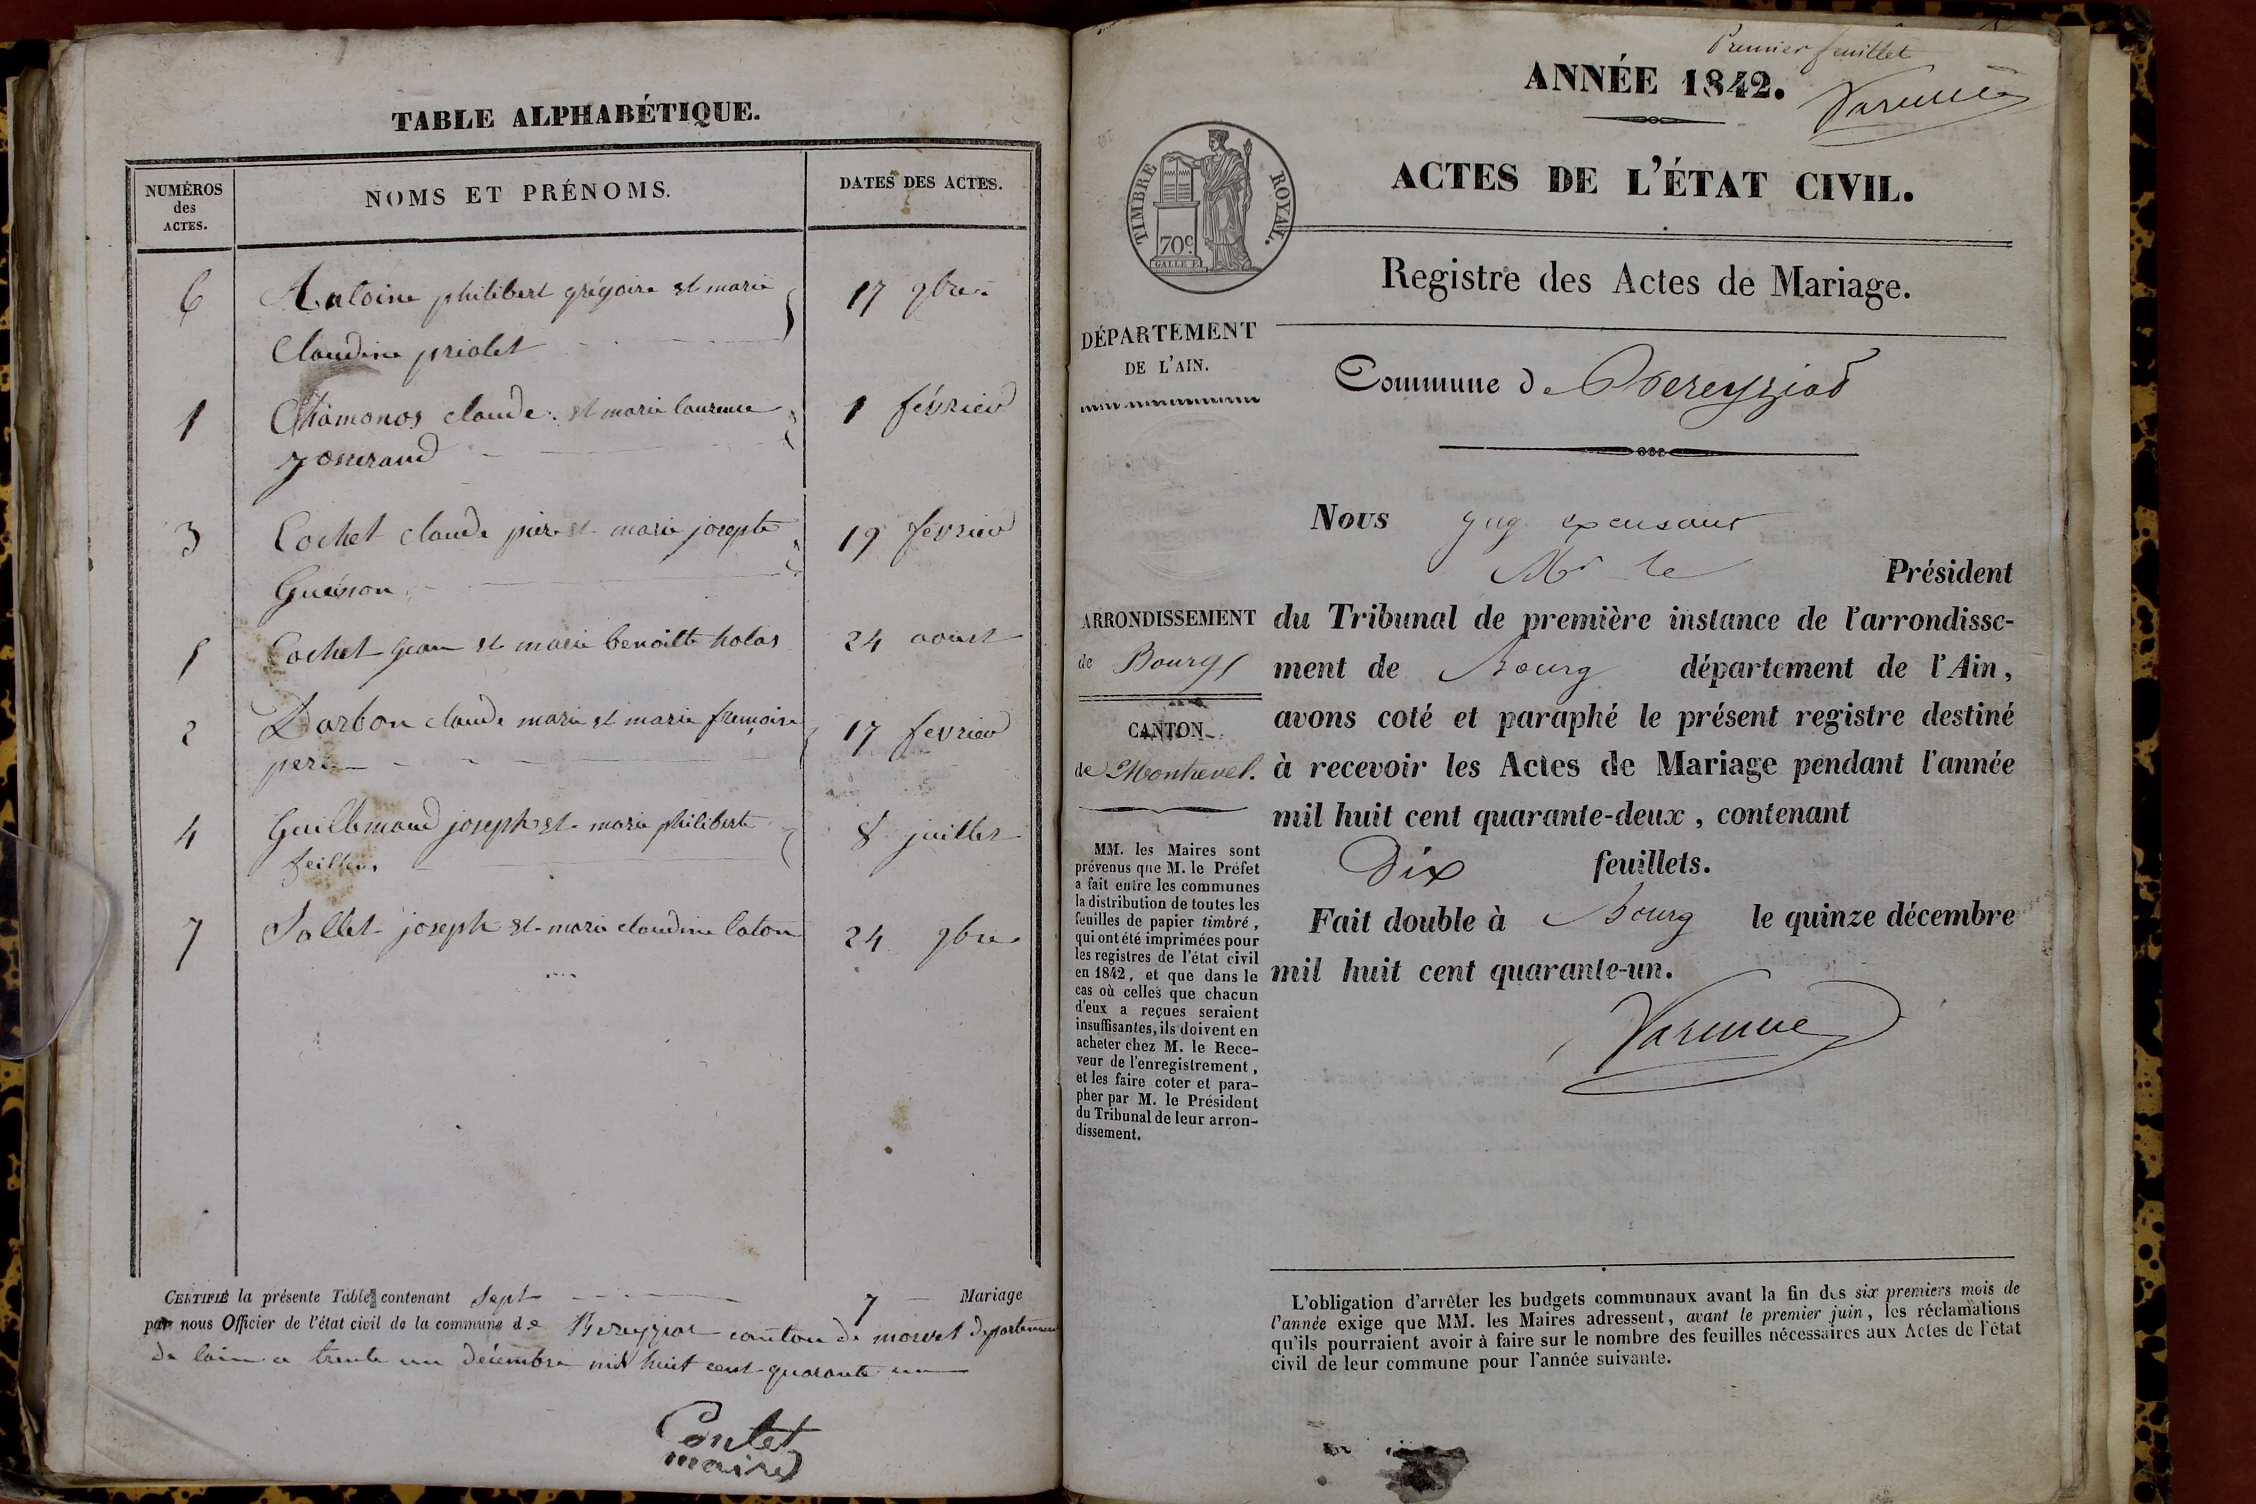 TABLE ALPHABÉTIQUE.
NUMÉROS
des
ACTES.
NOMS ET PRÉNOMS.
DATES DES ACTES.
6 Antoine philibert grégoire et marie 17 9bre
Claudine priolet
1 Chamonos claude et marie laurence 1 février
josserand
3 Cochet claude pierre et marie josephte 19 février
Guénon
5 Cochet jean et marie benoitte holas 24 aoust
2 Darbon claude marie et marie françoise 17 fevrier
4 Guillemaud joseph et marie philiberte 8 juillet
7 Sallet joseph et marie claudine laton 24 9bre
CERTIFIÉ la présente Table contenant Sept 7 Mariage
par nous Officier de l'état civil de la commune de Bereyziat canton de monvet departement
de lain ce trente un décembre mil huit cent quarante un
Contet
maire
Premier feuillet
ANNÉE 1842.
Varenne
TIMBRE ROYAL.
70c
ACTES DE L'ÉTAT CIVIL.
Registre des Actes de Mariage.
DÉPARTEMENT
DE L'AIN.
Commune de Bereyziat
Nous
Mr le Président
ARRONDISSEMENT
de Bourg
CANTON
de Montrevel.
du Tribunal de première instance de l'arrondisse-
ment de Bourg département de l'Ain,
avons coté et paraphé le présent registre destiné
à recevoir les Actes de Mariage pendant l'année
mil huit cent quarante-deux, contenant
Dix feuillets.
Fait double à Bourg le quinze décembre
mil huit cent quarante-un.
Varenne
MM. les Maires sont
prévenus que M. le Préfet
a fait entre les communes
la distribution de toutes les
feuilles de papier timbré,
qui ont été imprimées pour
les registres de l'état civil
en 1842, et que dans le
cas où celles que chacun
d'eux a reçues seraient
insuffisantes, ils doivent en
acheter chez M. le Rece-
veur de l'enregistrement,
et les faire coter et para-
pher par M. le Président
du Tribunal de leur arron-
dissement.
L'obligation d'arrêter les budgets communaux avant la fin des six premiers mois de
l'année exige que MM. les Maires adressent, avant le premier juin, les réclamations
qu'ils pourraient avoir à faire sur le nombre des feuilles nécessaires aux Actes de l'état
civil de leur commune pour l'année suivante.